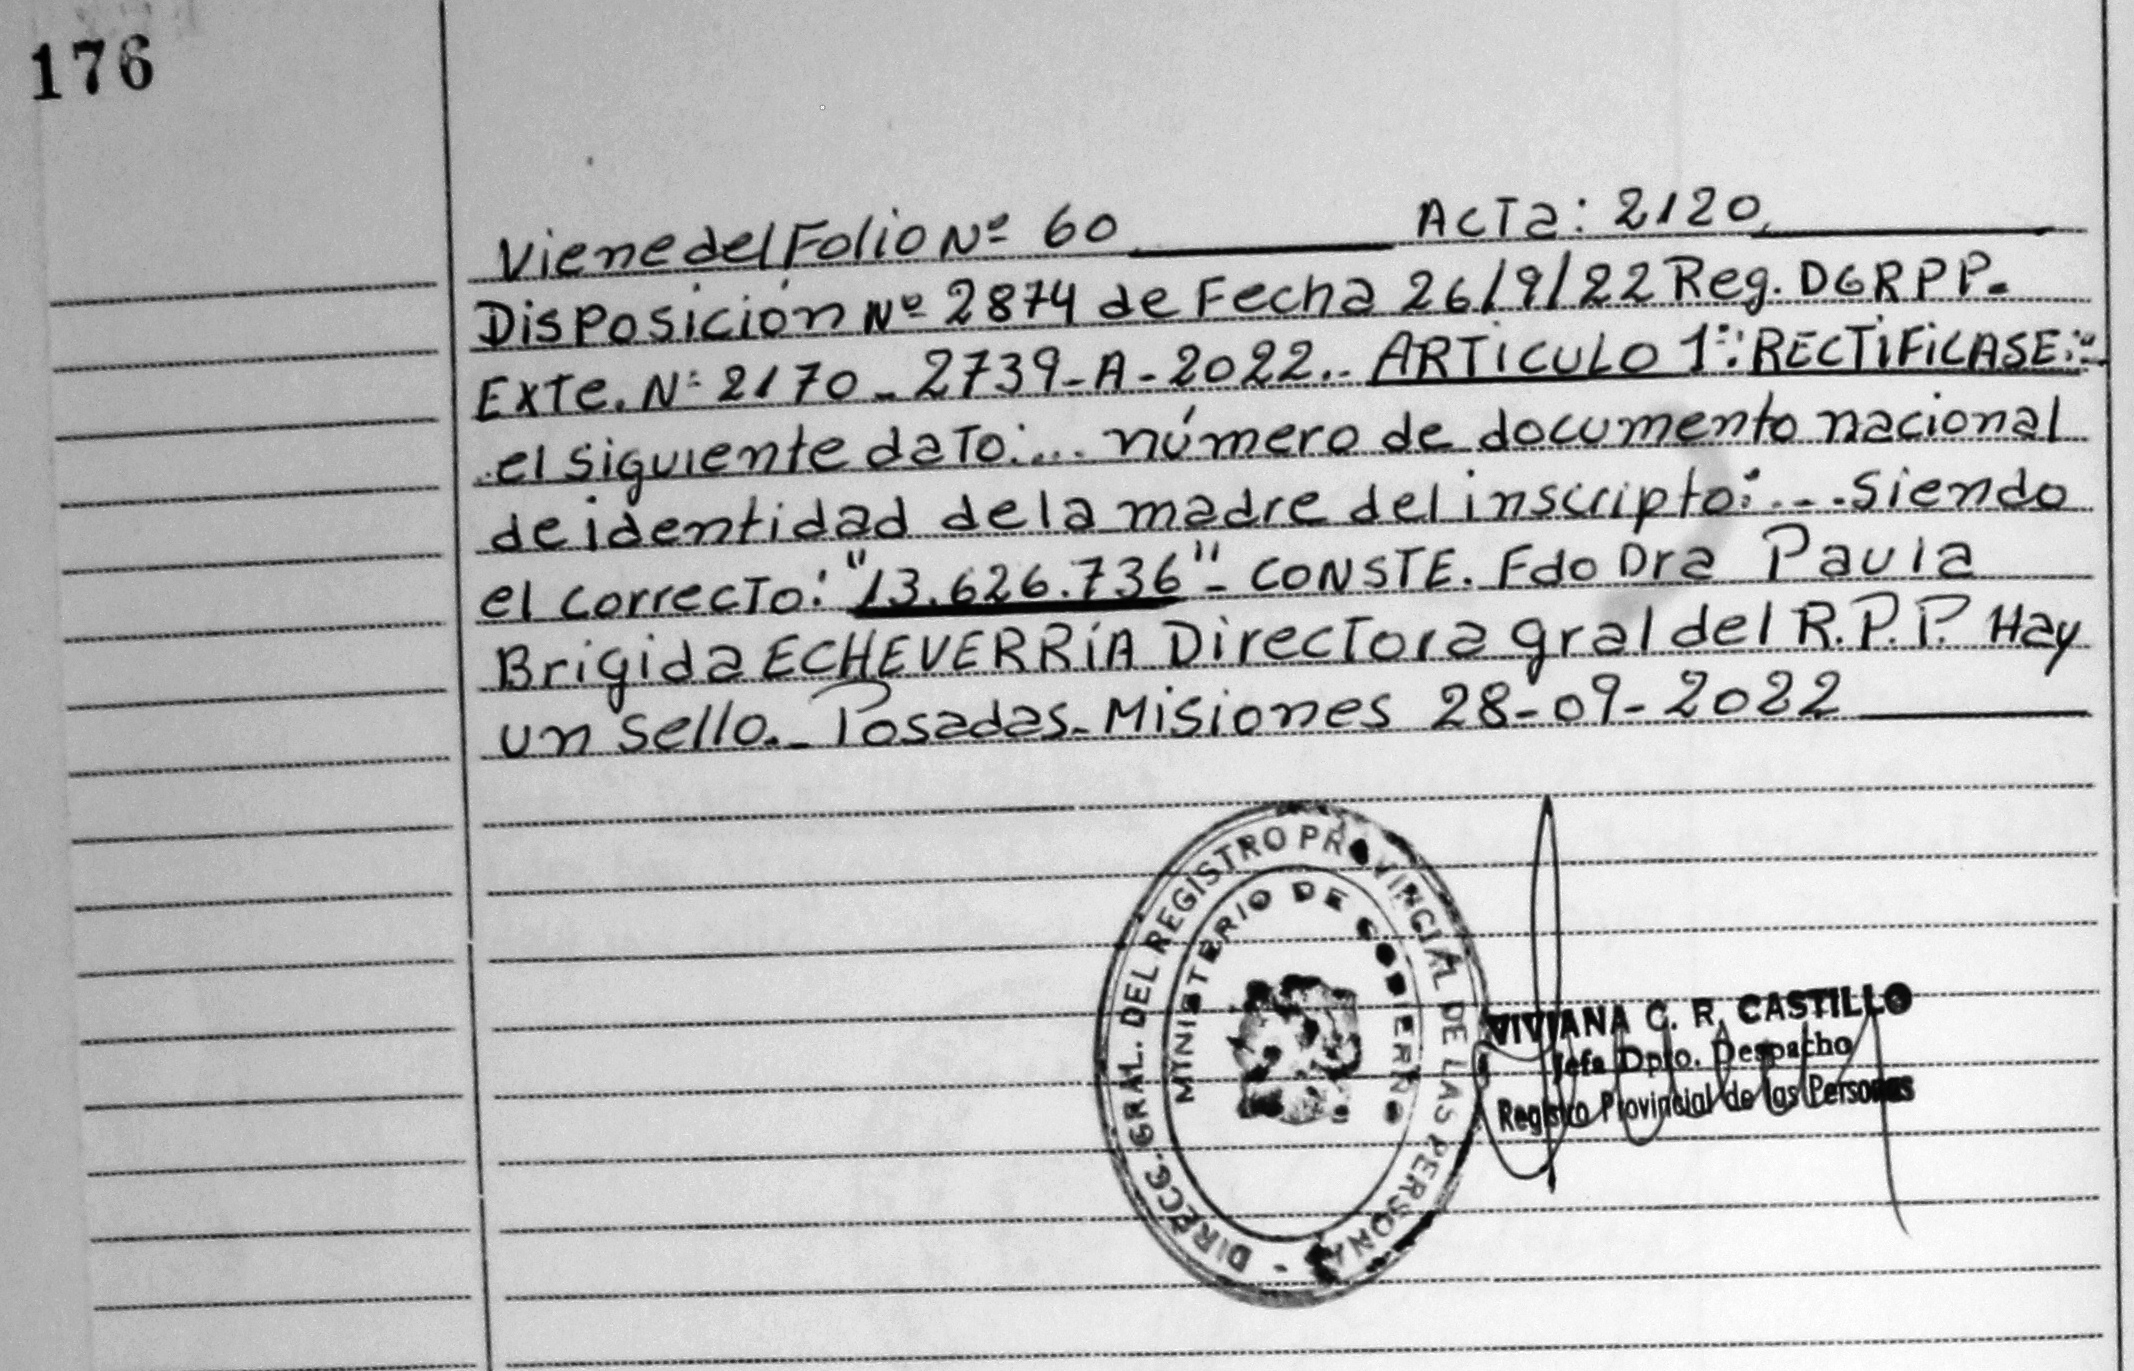 176
Viene del Folio Nº 60 ACTa: 2120,
DisPosición Nº 2874 de Fecha 26/9/22 Reg. DGRPP.
EXTe. Nº 2170-2739-A-2022.. ARTiCULO 1º: RECTiFiCASE:"
el siguiente daTo:... número de documento nacional
de identidad de la madre del inscripto:... siendo
el correcTo: "13.626.736"- CONSTE. Fdo Dra Paula
Brigida ECHEVERRíA DirecTora gral del R.P.P. Hay
un sello.- Posadas-Misiones 28-09-2022
DIRECC. GRAL. DEL REGISTRO PROVINCIAL DE LAS PERSONAS
MINISTERIO DE GOBIERNO
VIVIANA C. R. CASTILLO
Jefa Dpto. Despacho
Registro Provincial de las Personas